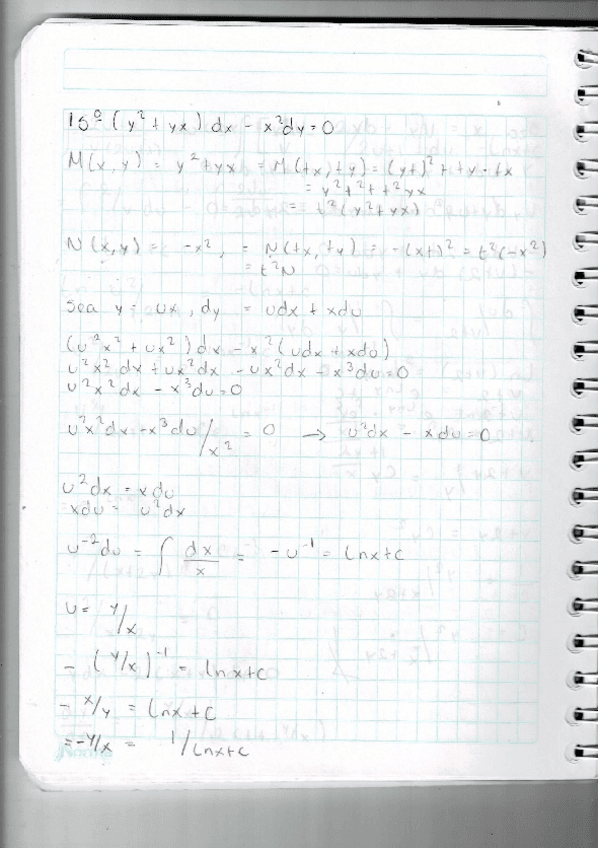 15º (y² + yx) dx - x²dy = 0
M(x,y) = y² + yx = M(tx,ty) = (yt)² + ty·tx
= y²t² + t²yx
= t²(y²+yx)
N(x,y) = -x², = N(tx,ty) = -(xt)² = t²(-x²)
= t²N
Sea y = ux, dy = udx + xdu
(u²x² + ux²)dx - x²(udx + xdu)
u²x²dx + ux²dx - ux²dx - x³du = 0
u²x²dx - x³du = 0
u²x²dx - x³du / x² = 0 → u²dx - xdu = 0
u²dx = xdu
xdu = u²dx
u⁻²du = ∫ dx/x = -u⁻¹ = lnx+c
u = y/x
- (y/x)⁻¹ = lnx+c
- x/y = lnx+c
= -y/x = 1/lnx+c